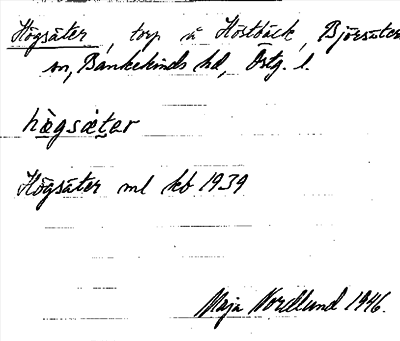 Högsäter, torp u Höstbäck, Björsäters
sn, Bankekinds hd, Östg. l.
hȯgsætar
Högsäter ml kb 1939
Maja Nordlund 1946.